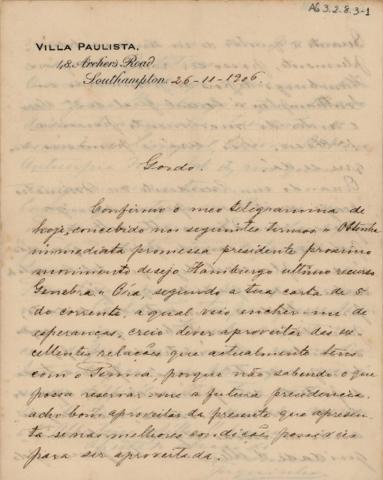 A63.2.8.3-1
VILLA PAULISTA,
48, Archers Road
Southampton, 26-11-1906.
Gordo.
Confirmo o meo telegramma de
hoje, concebido nos seguintes termos "Obtenha
immediata promessa presidente proximo
movimento desejo Hamburgo ultimo recurso
Genebra", segundo a tua carta de 5
do corrente, a qual veio encher-me de
esperanças, creio dever aproveitar das ex-
cellentes relações que actualmente tens
com o Penna, porque não sabendo o que
possa reservar-nos a futura presidencia,
acho bom aproveitar da presente que apresen-
ta-se nas melhores condições possiveis
para ser aproveitada.